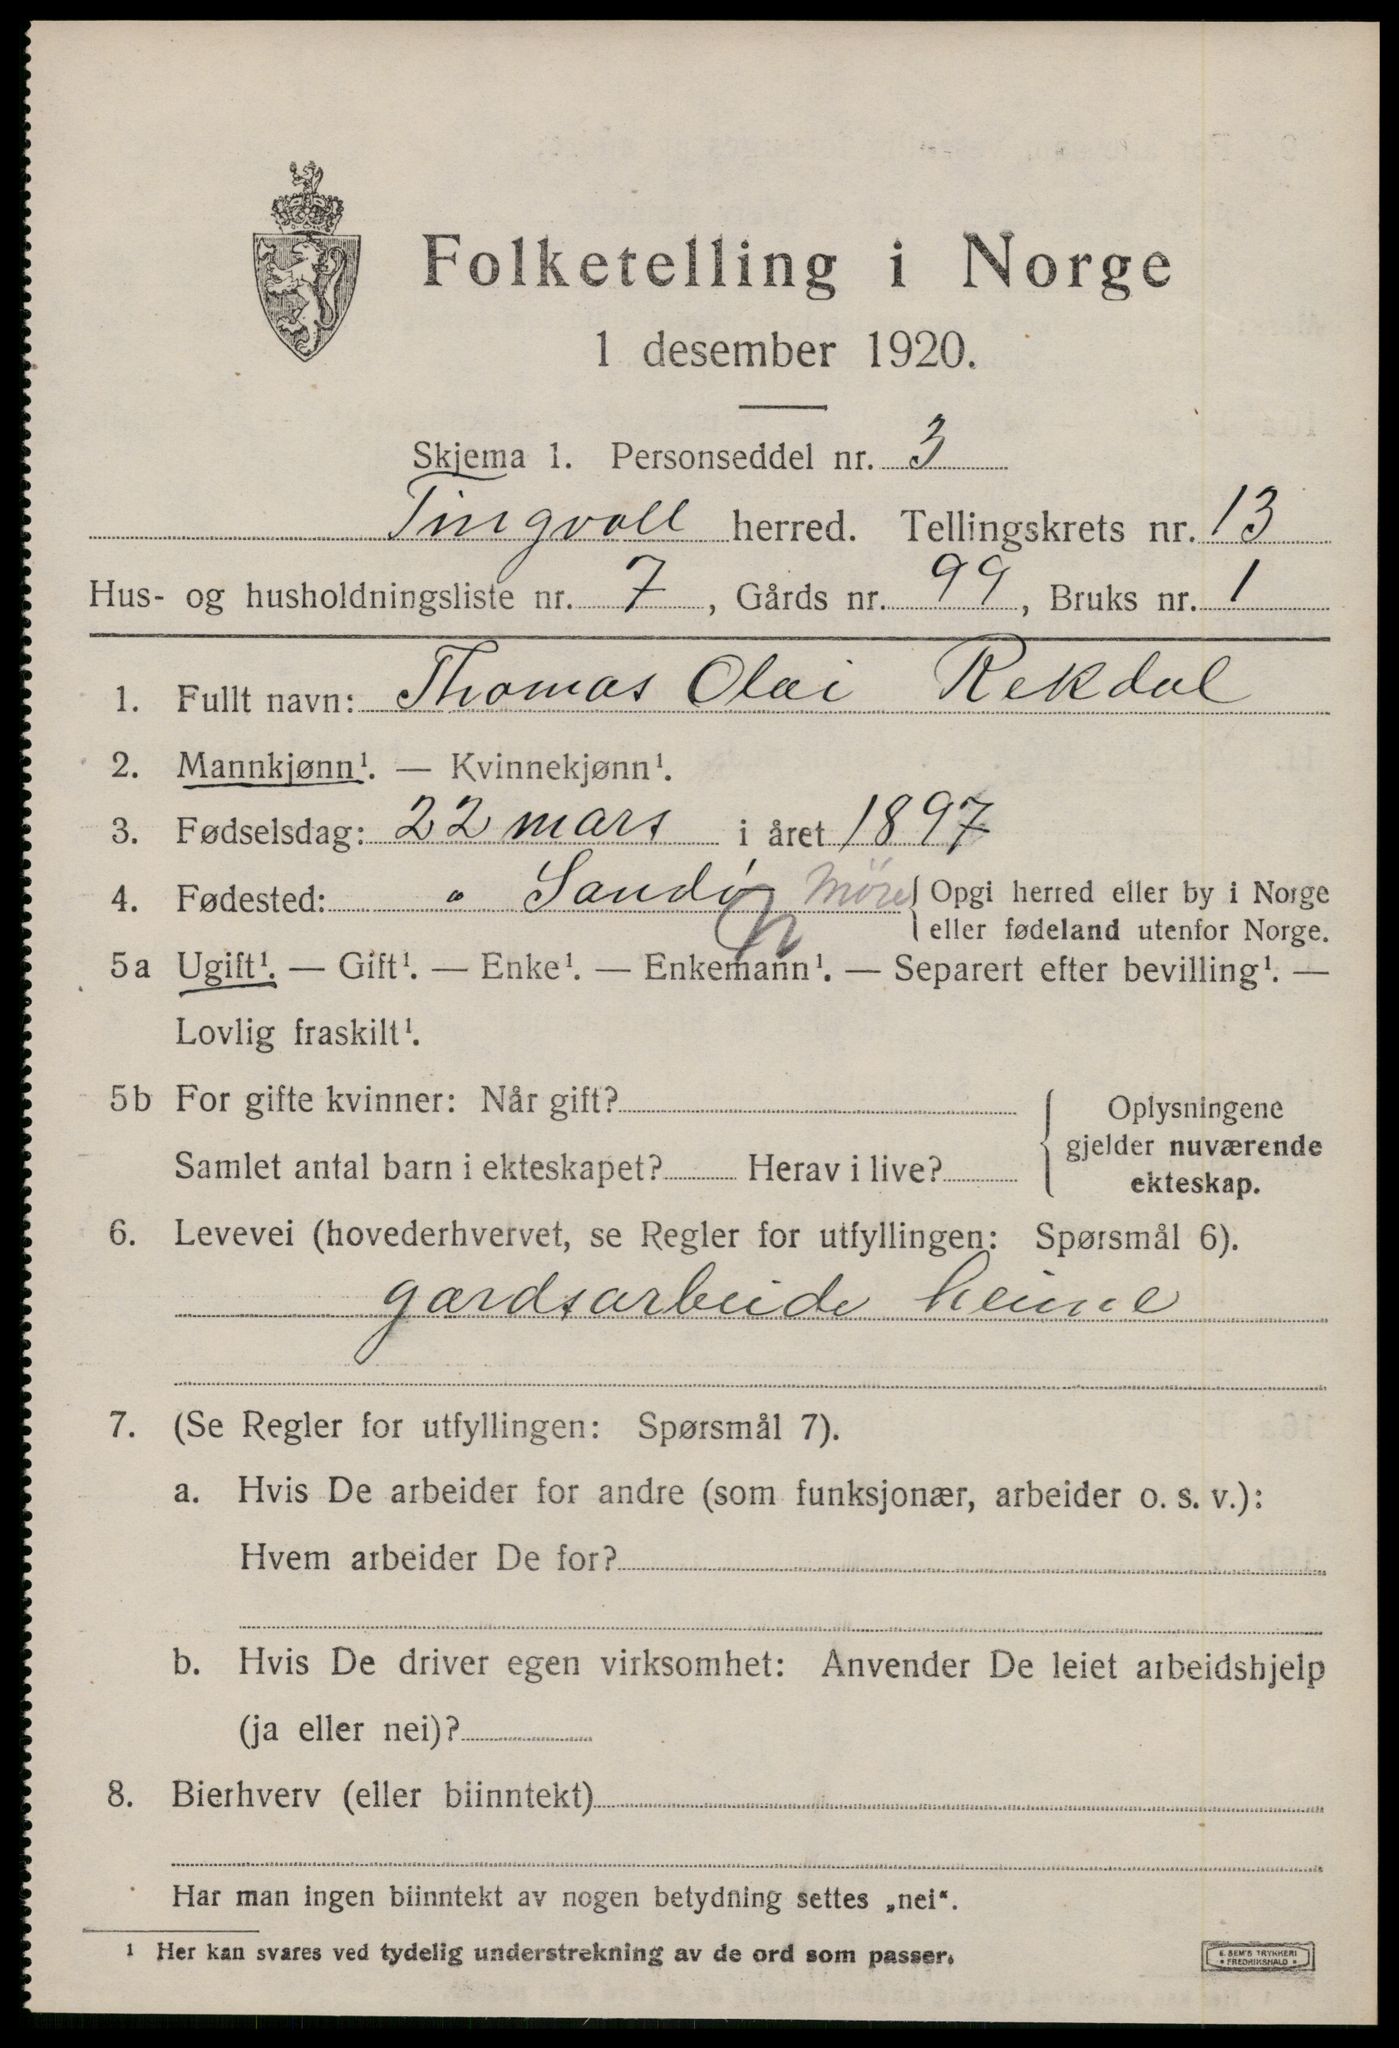 Folketelling i Norge
1 desember 1920.
Skjema 1. Personseddel nr. 3
Tingvoll herred. Tellingskrets nr. 13
Hus- og husholdningsliste nr. 7, Gårds nr. 99, Bruks nr. 1
1. Fullt navn: Thomas Olai Rekdal
2. Mannkjønn¹. — Kvinnekjønn¹.
3. Fødselsdag: 22 mars i året 1897
4. Fødested: " Sandø Möre { Opgi herred eller by i Norge
eller fødeland utenfor Norge.
5a Ugift¹. — Gift¹. — Enke¹. — Enkemann¹. — Separert efter bevilling¹. —
Lovlig fraskilt¹.
5b For gifte kvinner: Når gift?
Samlet antal barn i ekteskapet? Herav i live?
{ Oplysningene
gjelder nuværende
ekteskap.
6. Levevei (hovederhvervet, se Regler for utfyllingen: Spørsmål 6).
gardsarbeide heime
7. (Se Regler for utfyllingen: Spørsmål 7).
a. Hvis De arbeider for andre (som funksjonær, arbeider o. s. v.):
Hvem arbeider De for?
b. Hvis De driver egen virksomhet: Anvender De leiet arbeidshjelp
(ja eller nei)?
8. Bierhverv (eller biinntekt)
Har man ingen biinntekt av nogen betydning settes „nei“.
¹ Her kan svares ved tydelig understrekning av de ord som passer.
E. SEM'S TRYKKERI
• FREDRIKSHALD •